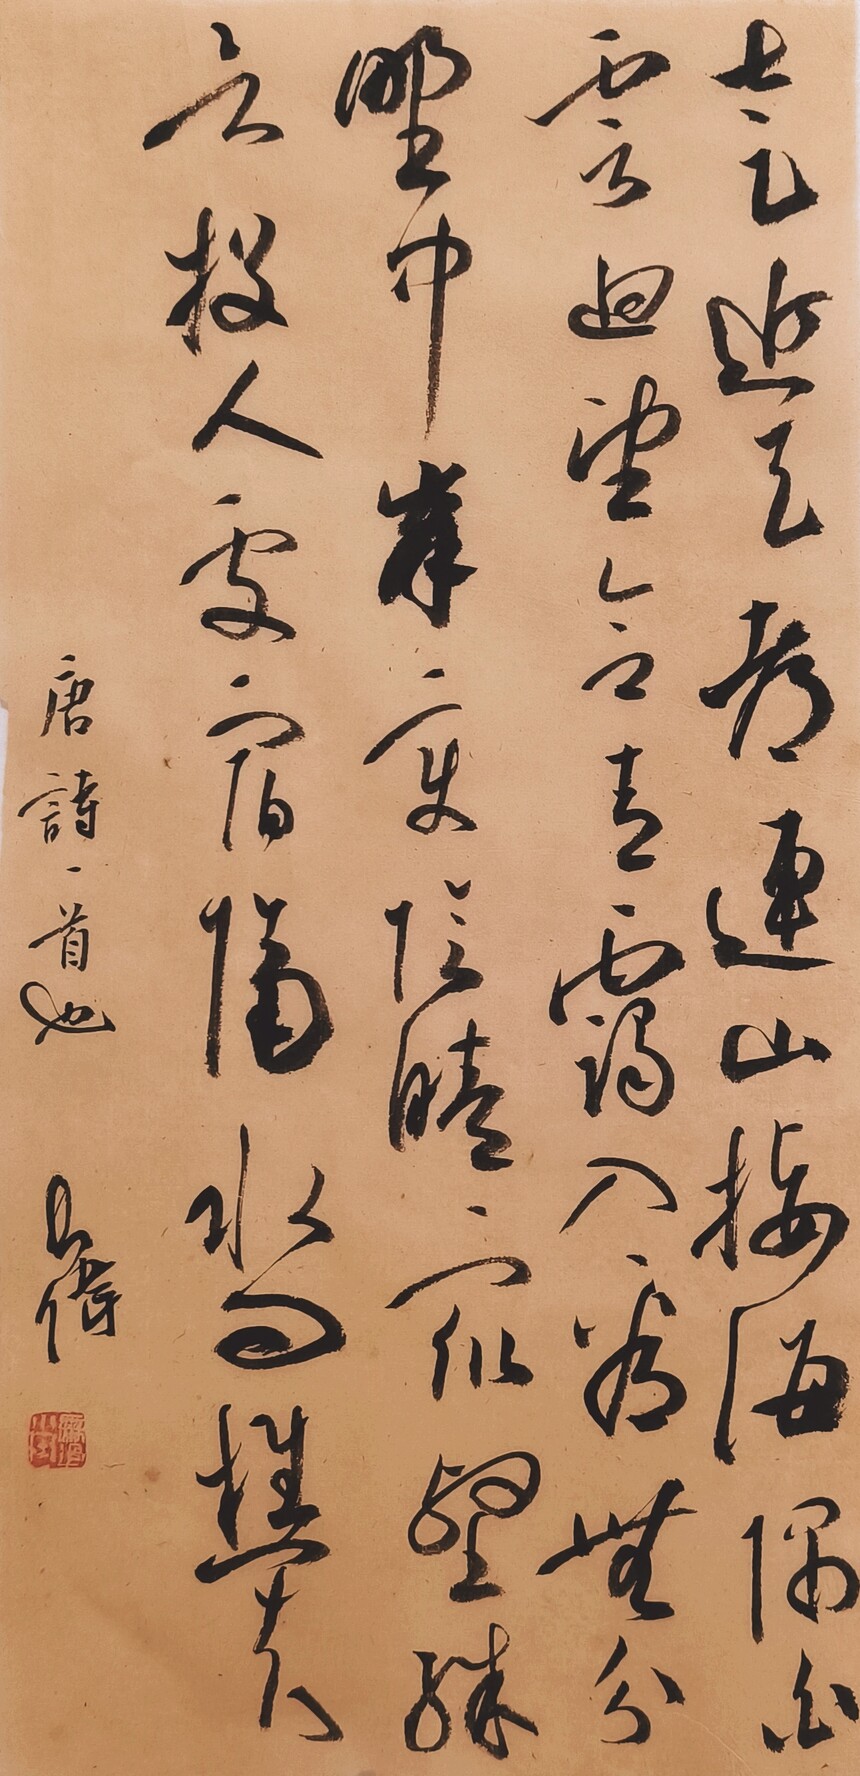 太乙近天都連山接海隅白
雲迴望合青靄入看無分
野中峯變陰晴衆壑殊
欲投人處宿隔水問樵夫
唐詩一首也